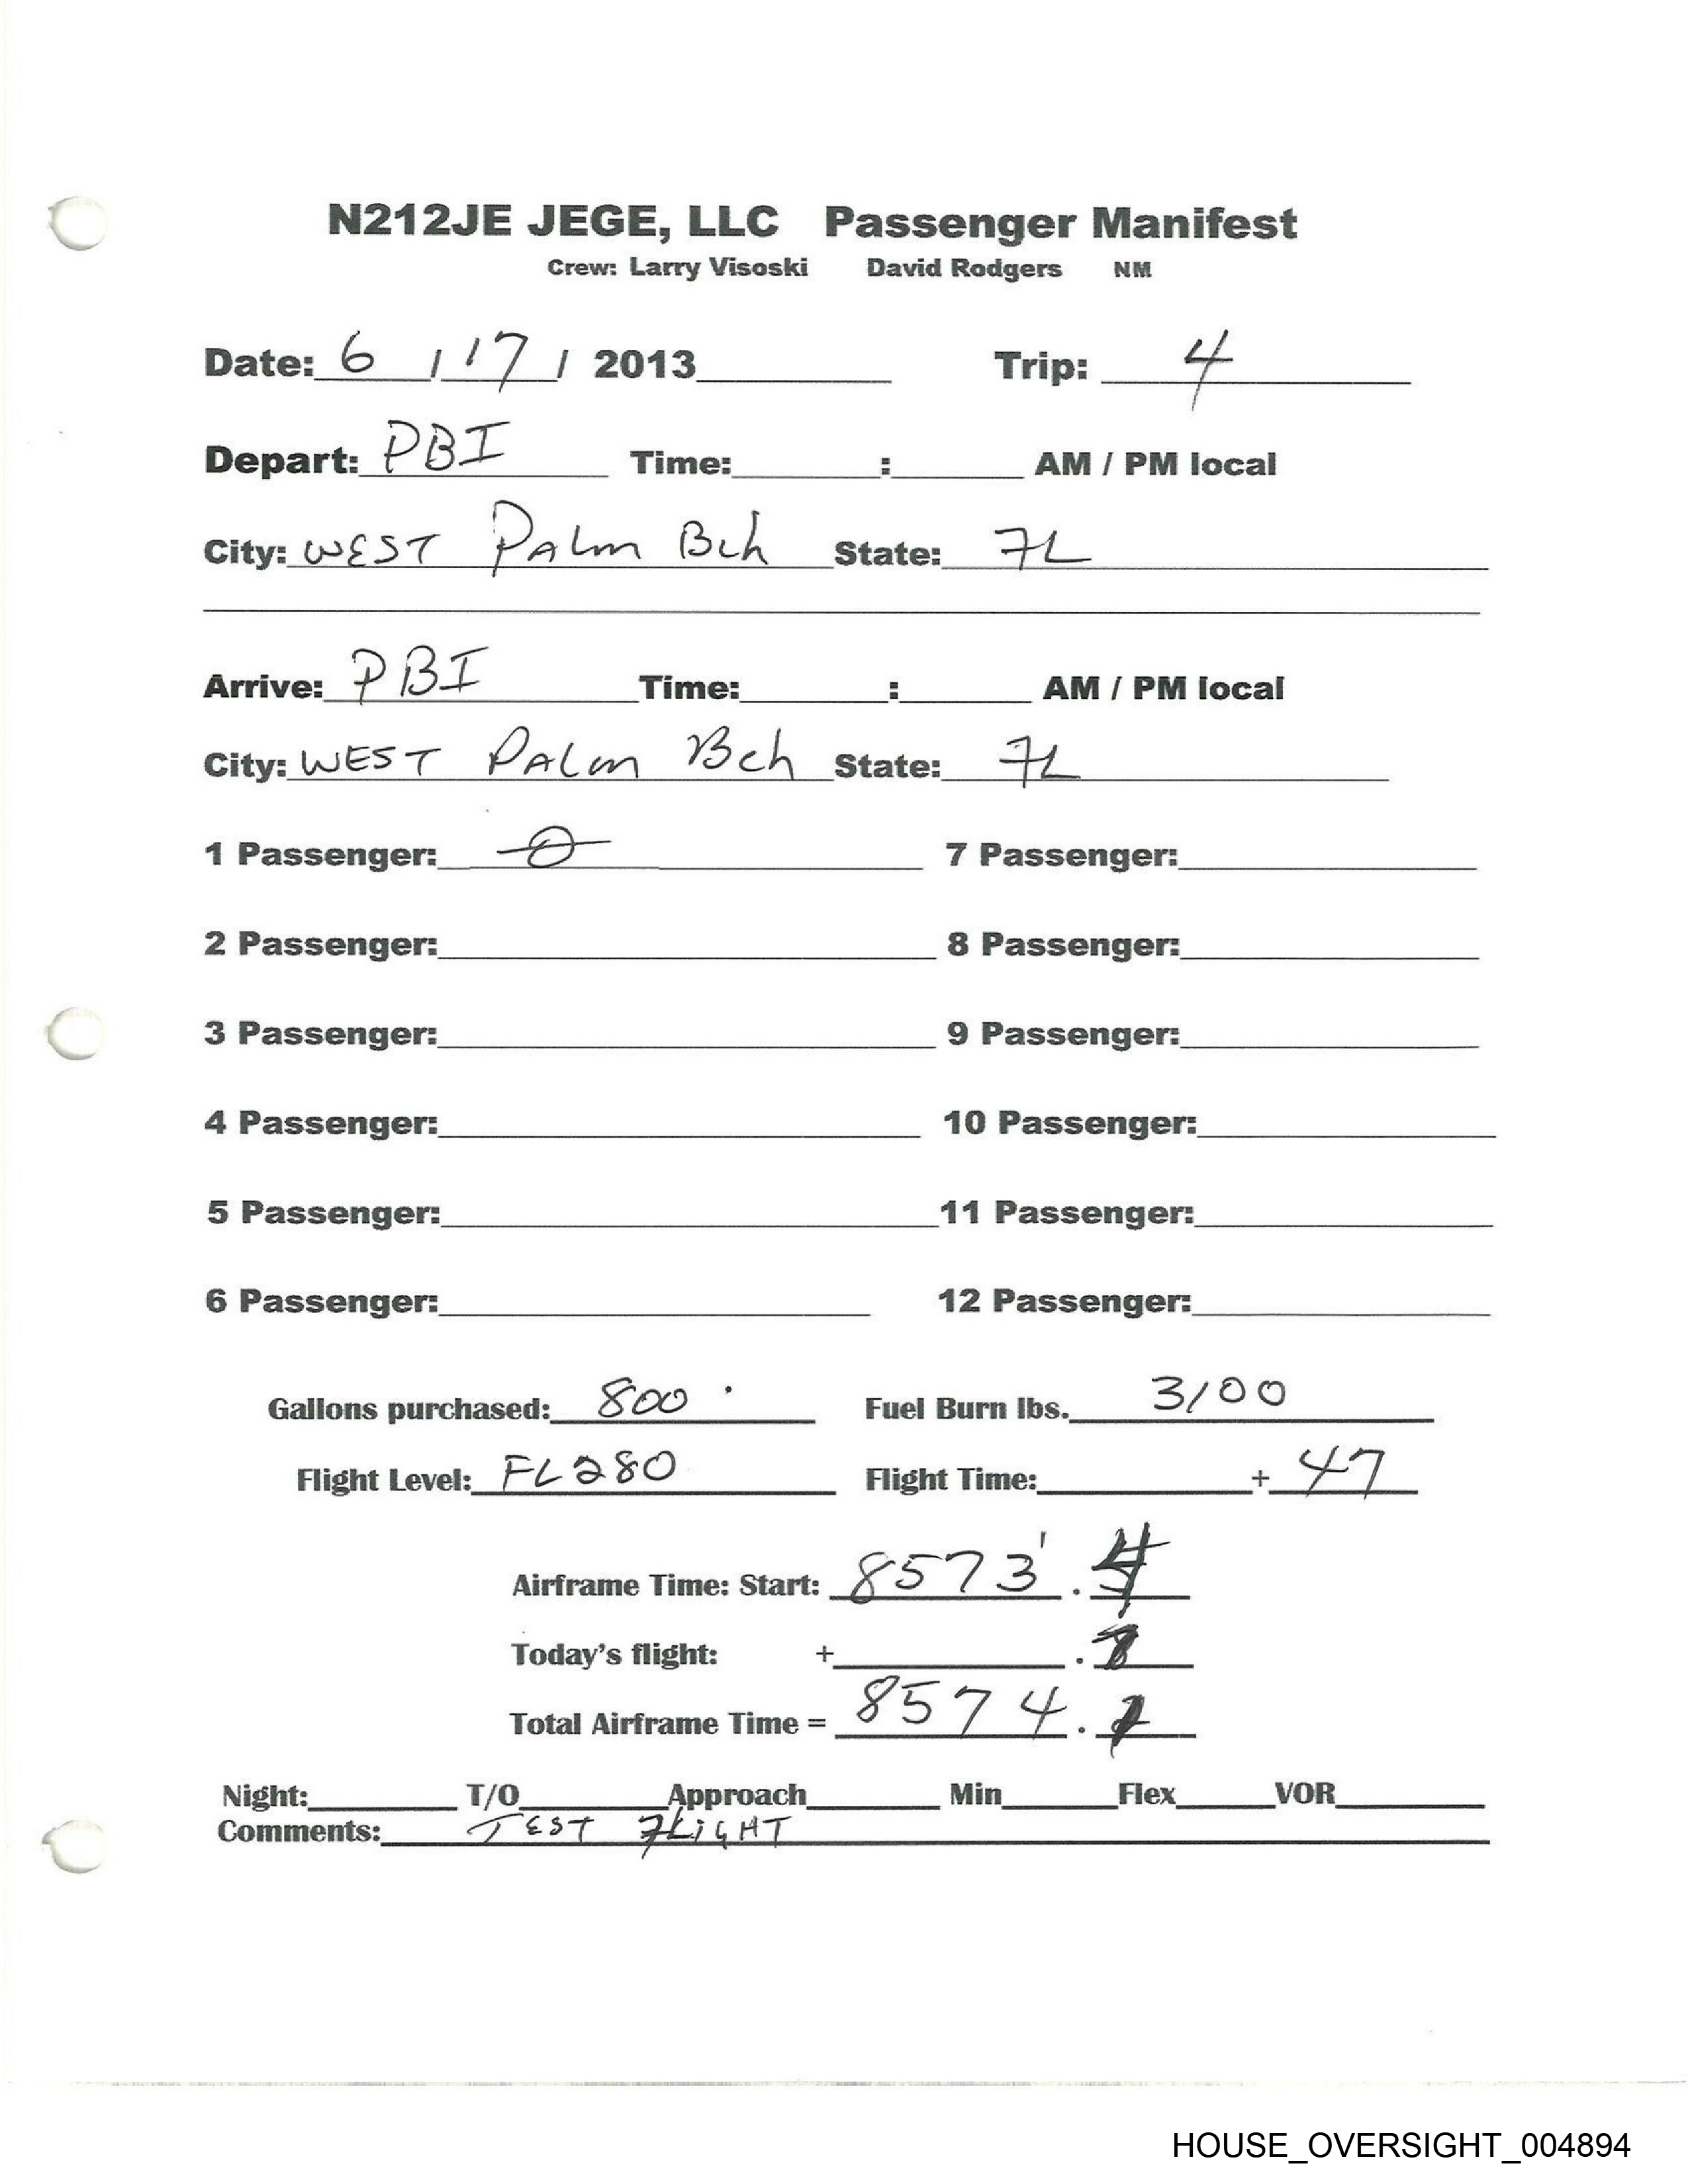 N212JE JEGE, LLC Passenger Manifest
Crew: Larry Visoski David Rodgers NM
Date: 6 / 17 / 2013 Trip: 4
Depart: PBI Time: : AM / PM local
City: WEST PALm Bch State: FL
Arrive: PBI Time: : AM / PM local
City: WEST PALm Bch State: FL
1 Passenger: 0 7 Passenger:
2 Passenger: 8 Passenger:
3 Passenger: 9 Passenger:
4 Passenger: 10 Passenger:
5 Passenger: 11 Passenger:
6 Passenger: 12 Passenger:
Gallons purchased: 800 Fuel Burn lbs. 3100
Flight Level: FL280 Flight Time: + 47
Airframe Time: Start: 8573 .
Today's flight: + .
Total Airframe Time = 8574 .
Night: T/O Approach Min Flex VOR
Comments: TEST FLiGHT
HOUSE_OVERSIGHT_004894